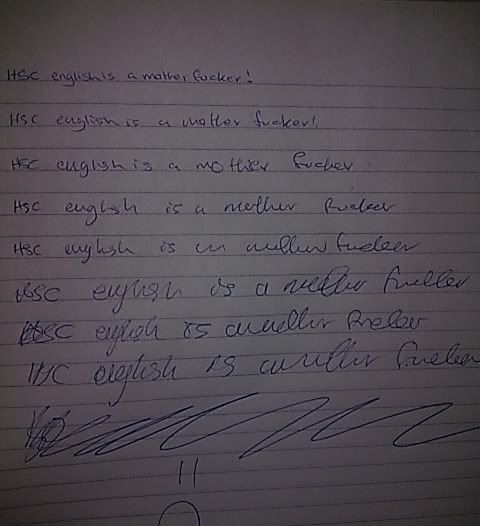 HSC english is a mother fucker!
HSC english is a mother fucker!
HSC english is a mother fucker.
HSC english is a mother fucker
HSC english is a mother fucker
HSC english is a mother fucker
HSC english is a mother fucker
HSC english is a mother fucker